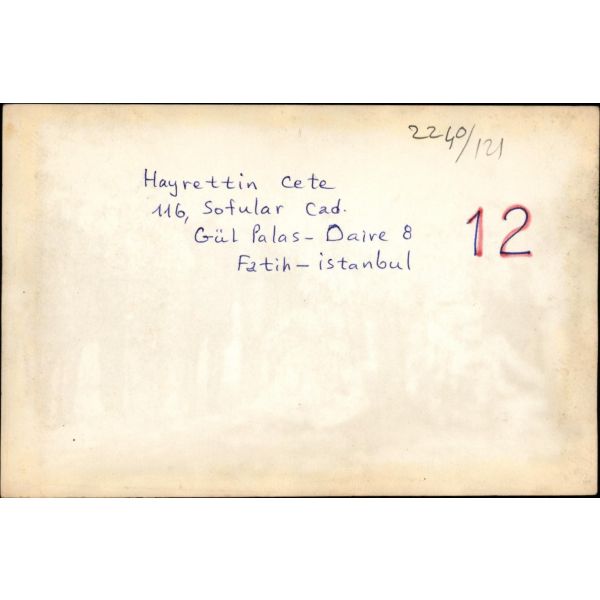 2240/121
Hayrettin Cete
116, Sofular Cad.
Gül Palas - Daire 8
Fatih - istanbul
12